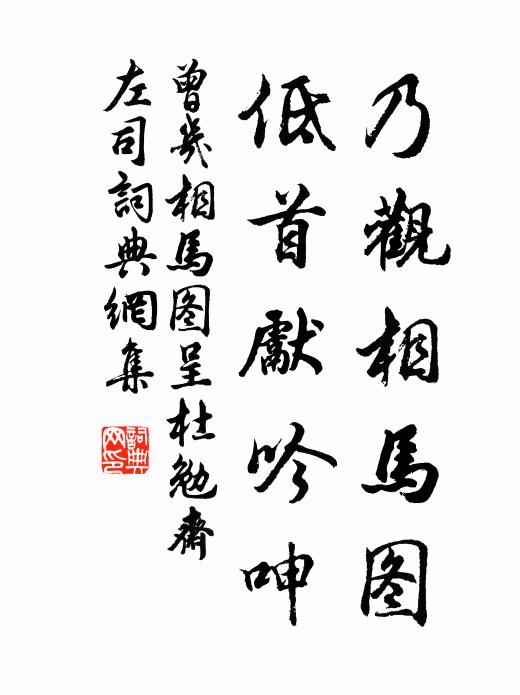 乃觀相馬图
低首獻吟呻
曾幾相馬图呈杜勉齋
左司詞典網集
詞典网印